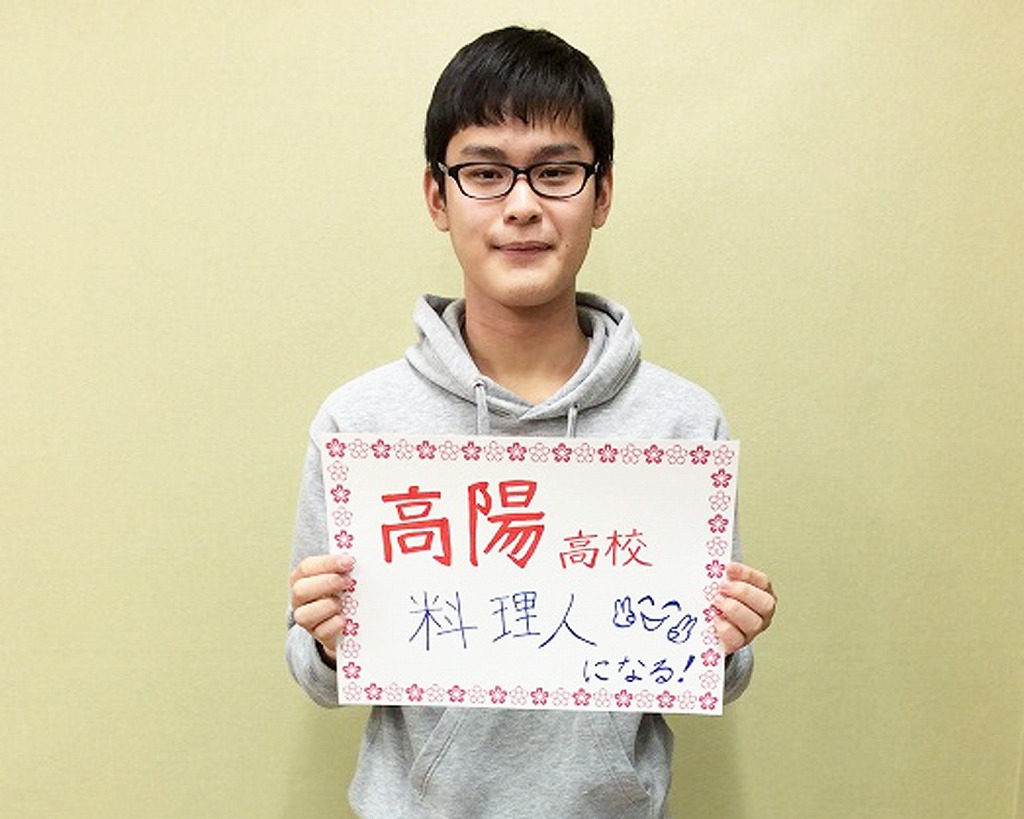 高陽高校
料理人
になる!